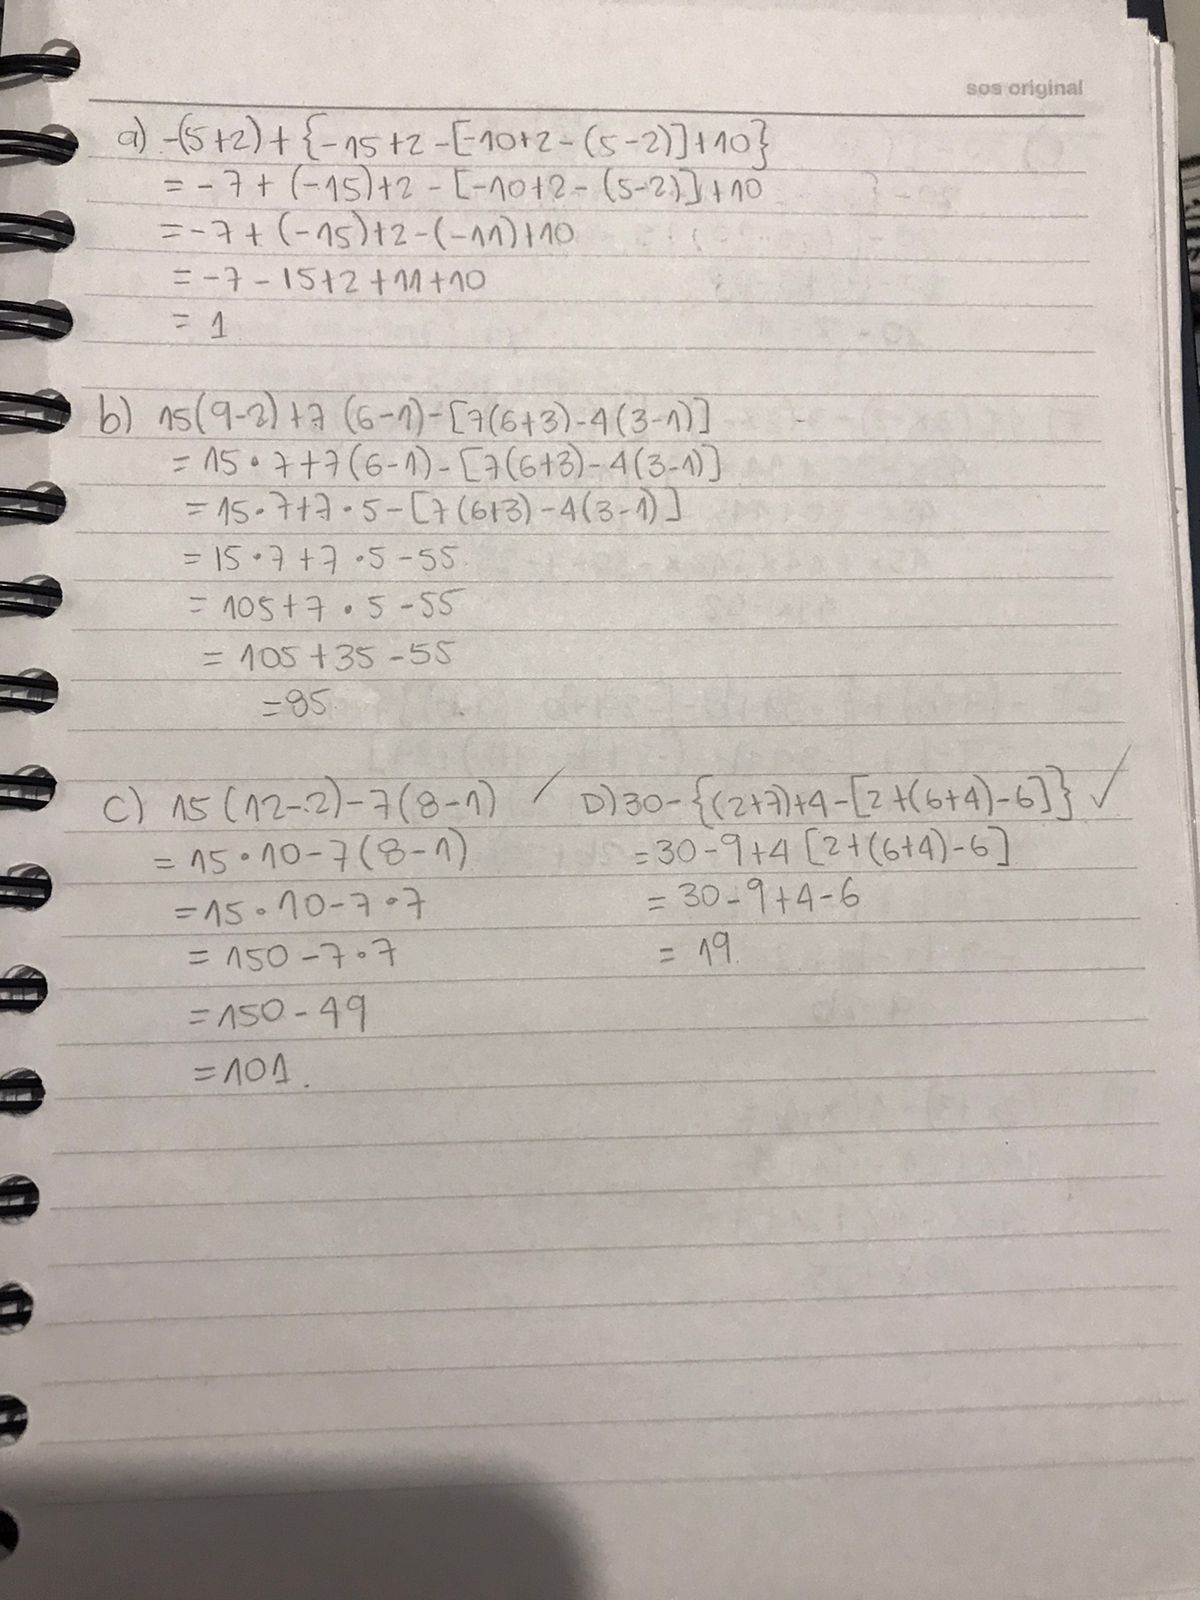 sos original
a) -(5+2)+{-15+2-[-10+2-(5-2)]+10}
= -7+(-15)+2-[-10+2-(5-2)]+10
= -7+(-15)+2-(-11)+10
= -7-15+2+11+10
= 1
b) 15(9-2)+7(6-1)-[7(6+3)-4(3-1)]
= 15·7+7(6-1)-[7(6+3)-4(3-1)]
= 15·7+7·5-[7(6+3)-4(3-1)]
= 15·7+7·5-55
= 105+7·5-55
= 105+35-55
= 85
c) 15(12-2)-7(8-1) ✓
= 15·10-7(8-1)
= 15·10-7·7
= 150-7·7
= 150-49
= 101.
D) 30-{(2+7)+4-[2+(6+4)-6]} ✓
= 30-9+4[2+(6+4)-6]
= 30-9+4-6
= 19.